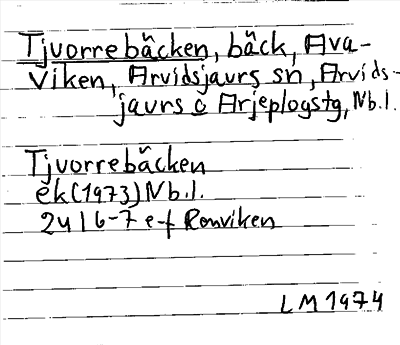 Tjvorrebäcken, bäck, Ava-
viken, Arvidsjaurs sn, Arvids-
jaurs o Arjeplogstg, Nb.l.
Tjvorrebäcken
ek (1973) Nb.l.
24 I 6-7 e-f Renviken
LM 1974